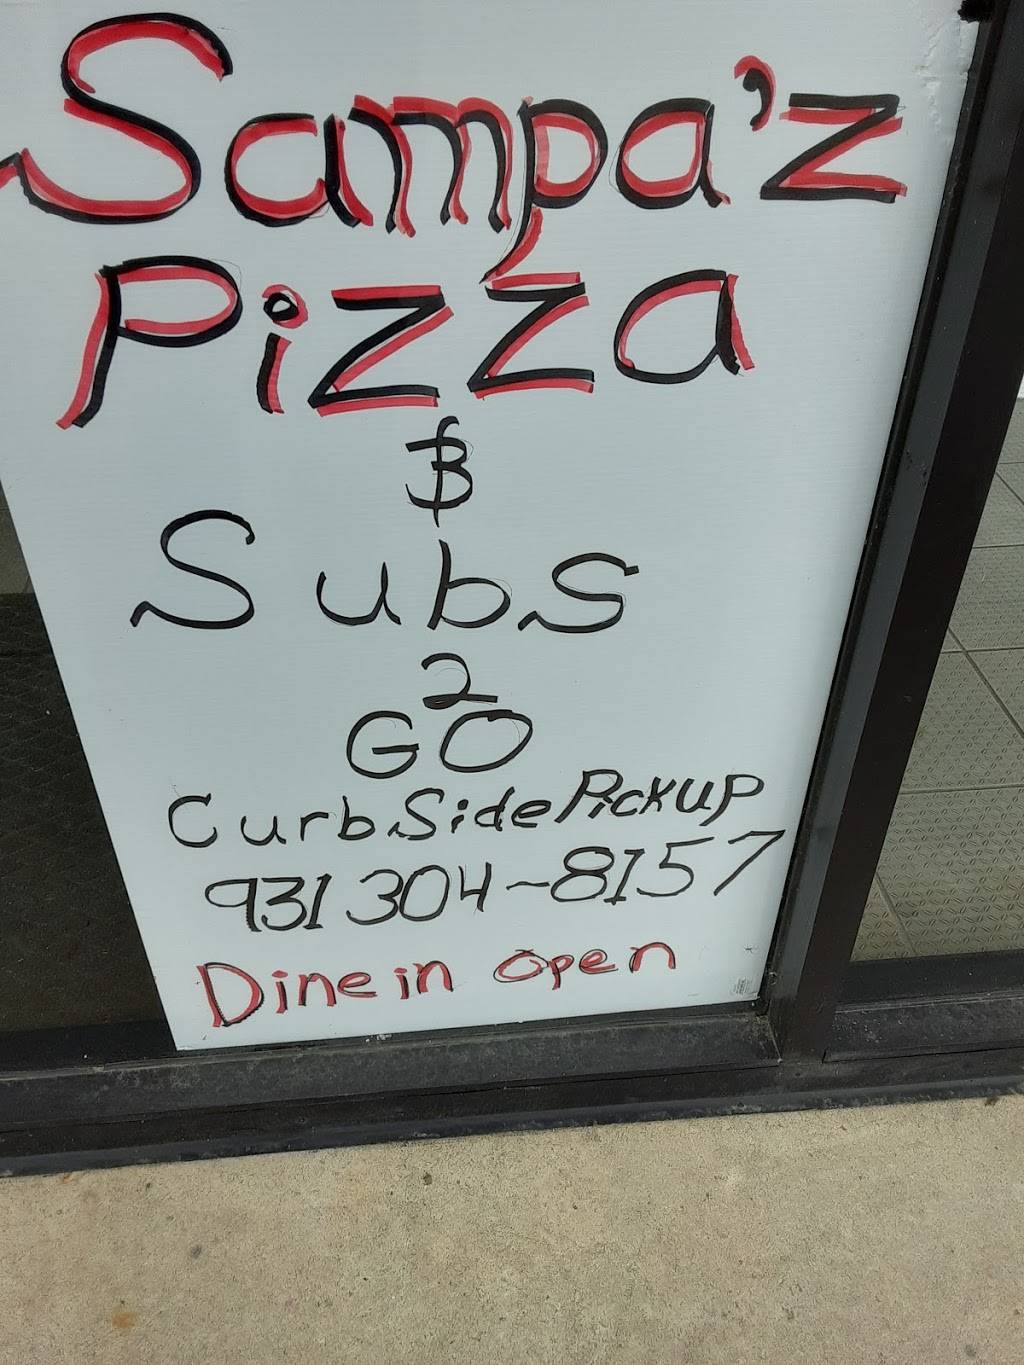 Sampa'z
Pizza
&
Subs
2
GO
CurbSide Pickup
931 304-8157
Dine in open